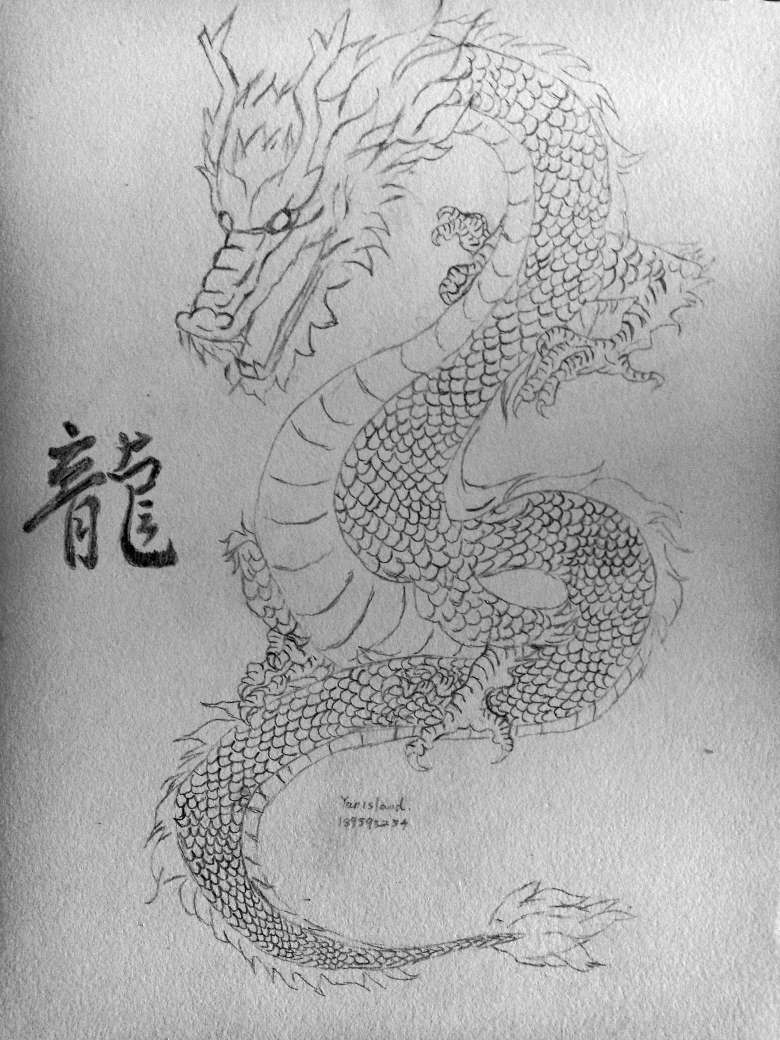 龍
Yanisland.
189593254